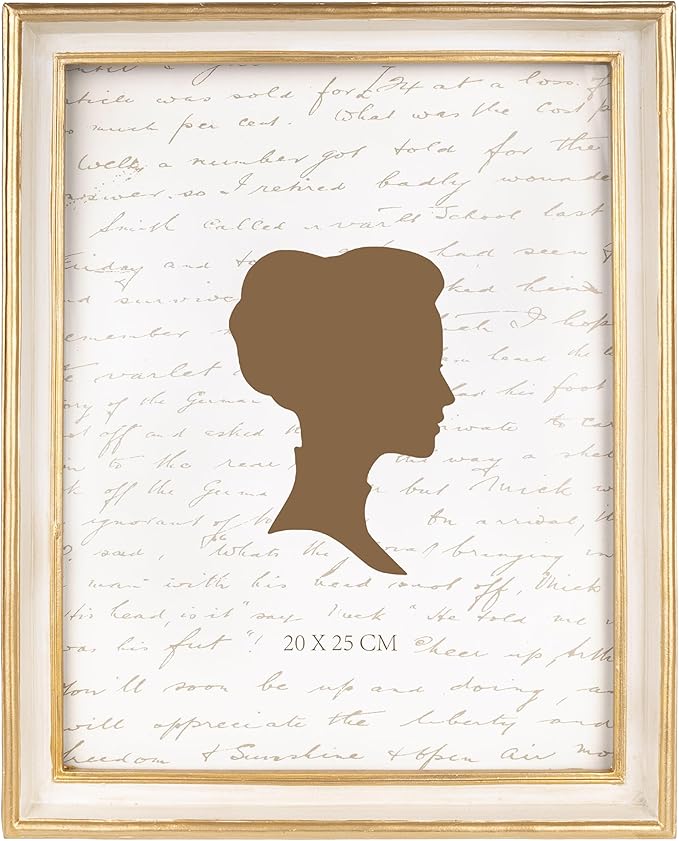 article was sold for 124 at a loss of
so much per cent. What was the cost p
Well, a number got told for the
answer. so I retired badly wounde
Smith called "varlet" School last
Friday and to had seen
and surviv ked him
emember which I hop
e varlet heard the
ory of the German had his foot
ot off and asked private to car
on to the rear the way a she
k off the Germa but Mick w
ignorant of On arrival,
said, "Whats the bringing in
man with his head shot off, Mick
His head, is it" say Mick "He told me
was his fut"! Cheer up, Arth
20 X 25 CM
You'll soon be up and doing, a
will appreciate the liberty and
freedom & Sunshine & open air mo